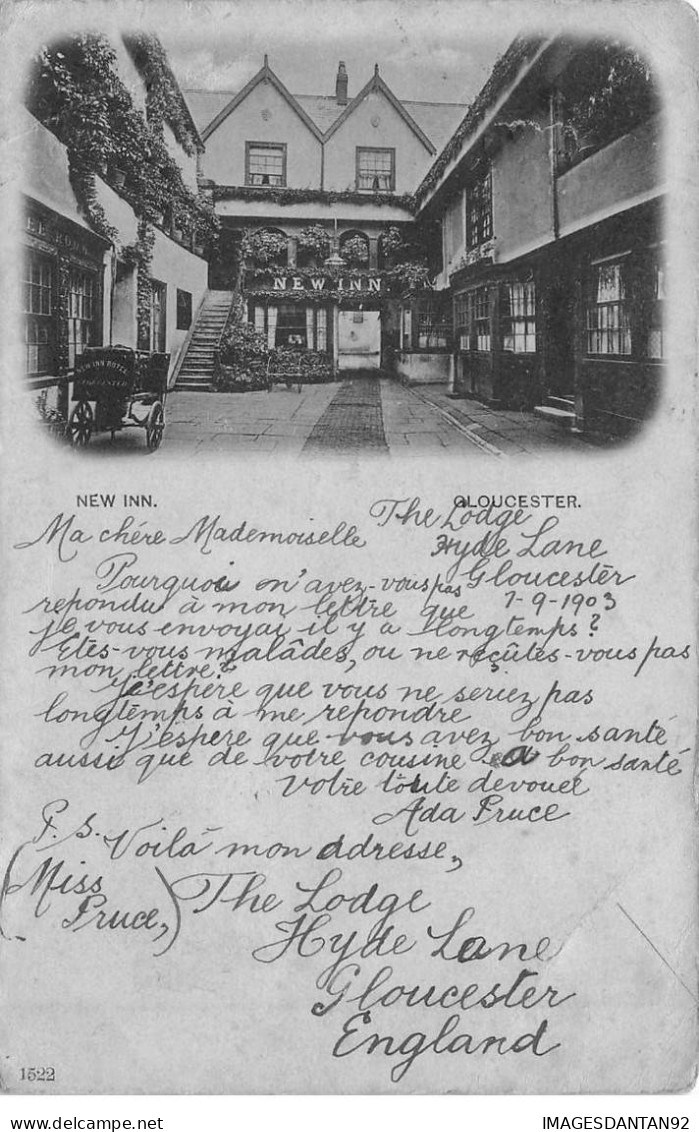 NEW INN
NEW INN HOTEL
GLOUCESTER
NEW INN. GLOUCESTER.
The Lodge
Ma chére Mademoiselle Hyde Lane
Gloucester
Pourquoi m'avez-vous pas
repondu à mon lettre que 7-9-1903
je vous envoyai il y a longtemps?
Etes-vous malâdes, ou ne reçûtes-vous pas
mon lettre?
J'espère que vous ne seriez pas
longtemps à me repondre
J'espère que vous avez bon santé
aussi que de votre cousine a bon santé
Votre toute devouée
Ada Pruce
P.S. Voilà mon adresse,
(Miss Pruce,) The Lodge
Hyde Lane
Gloucester
England
1522
IMAGESDANTAN92
Delcampe.net